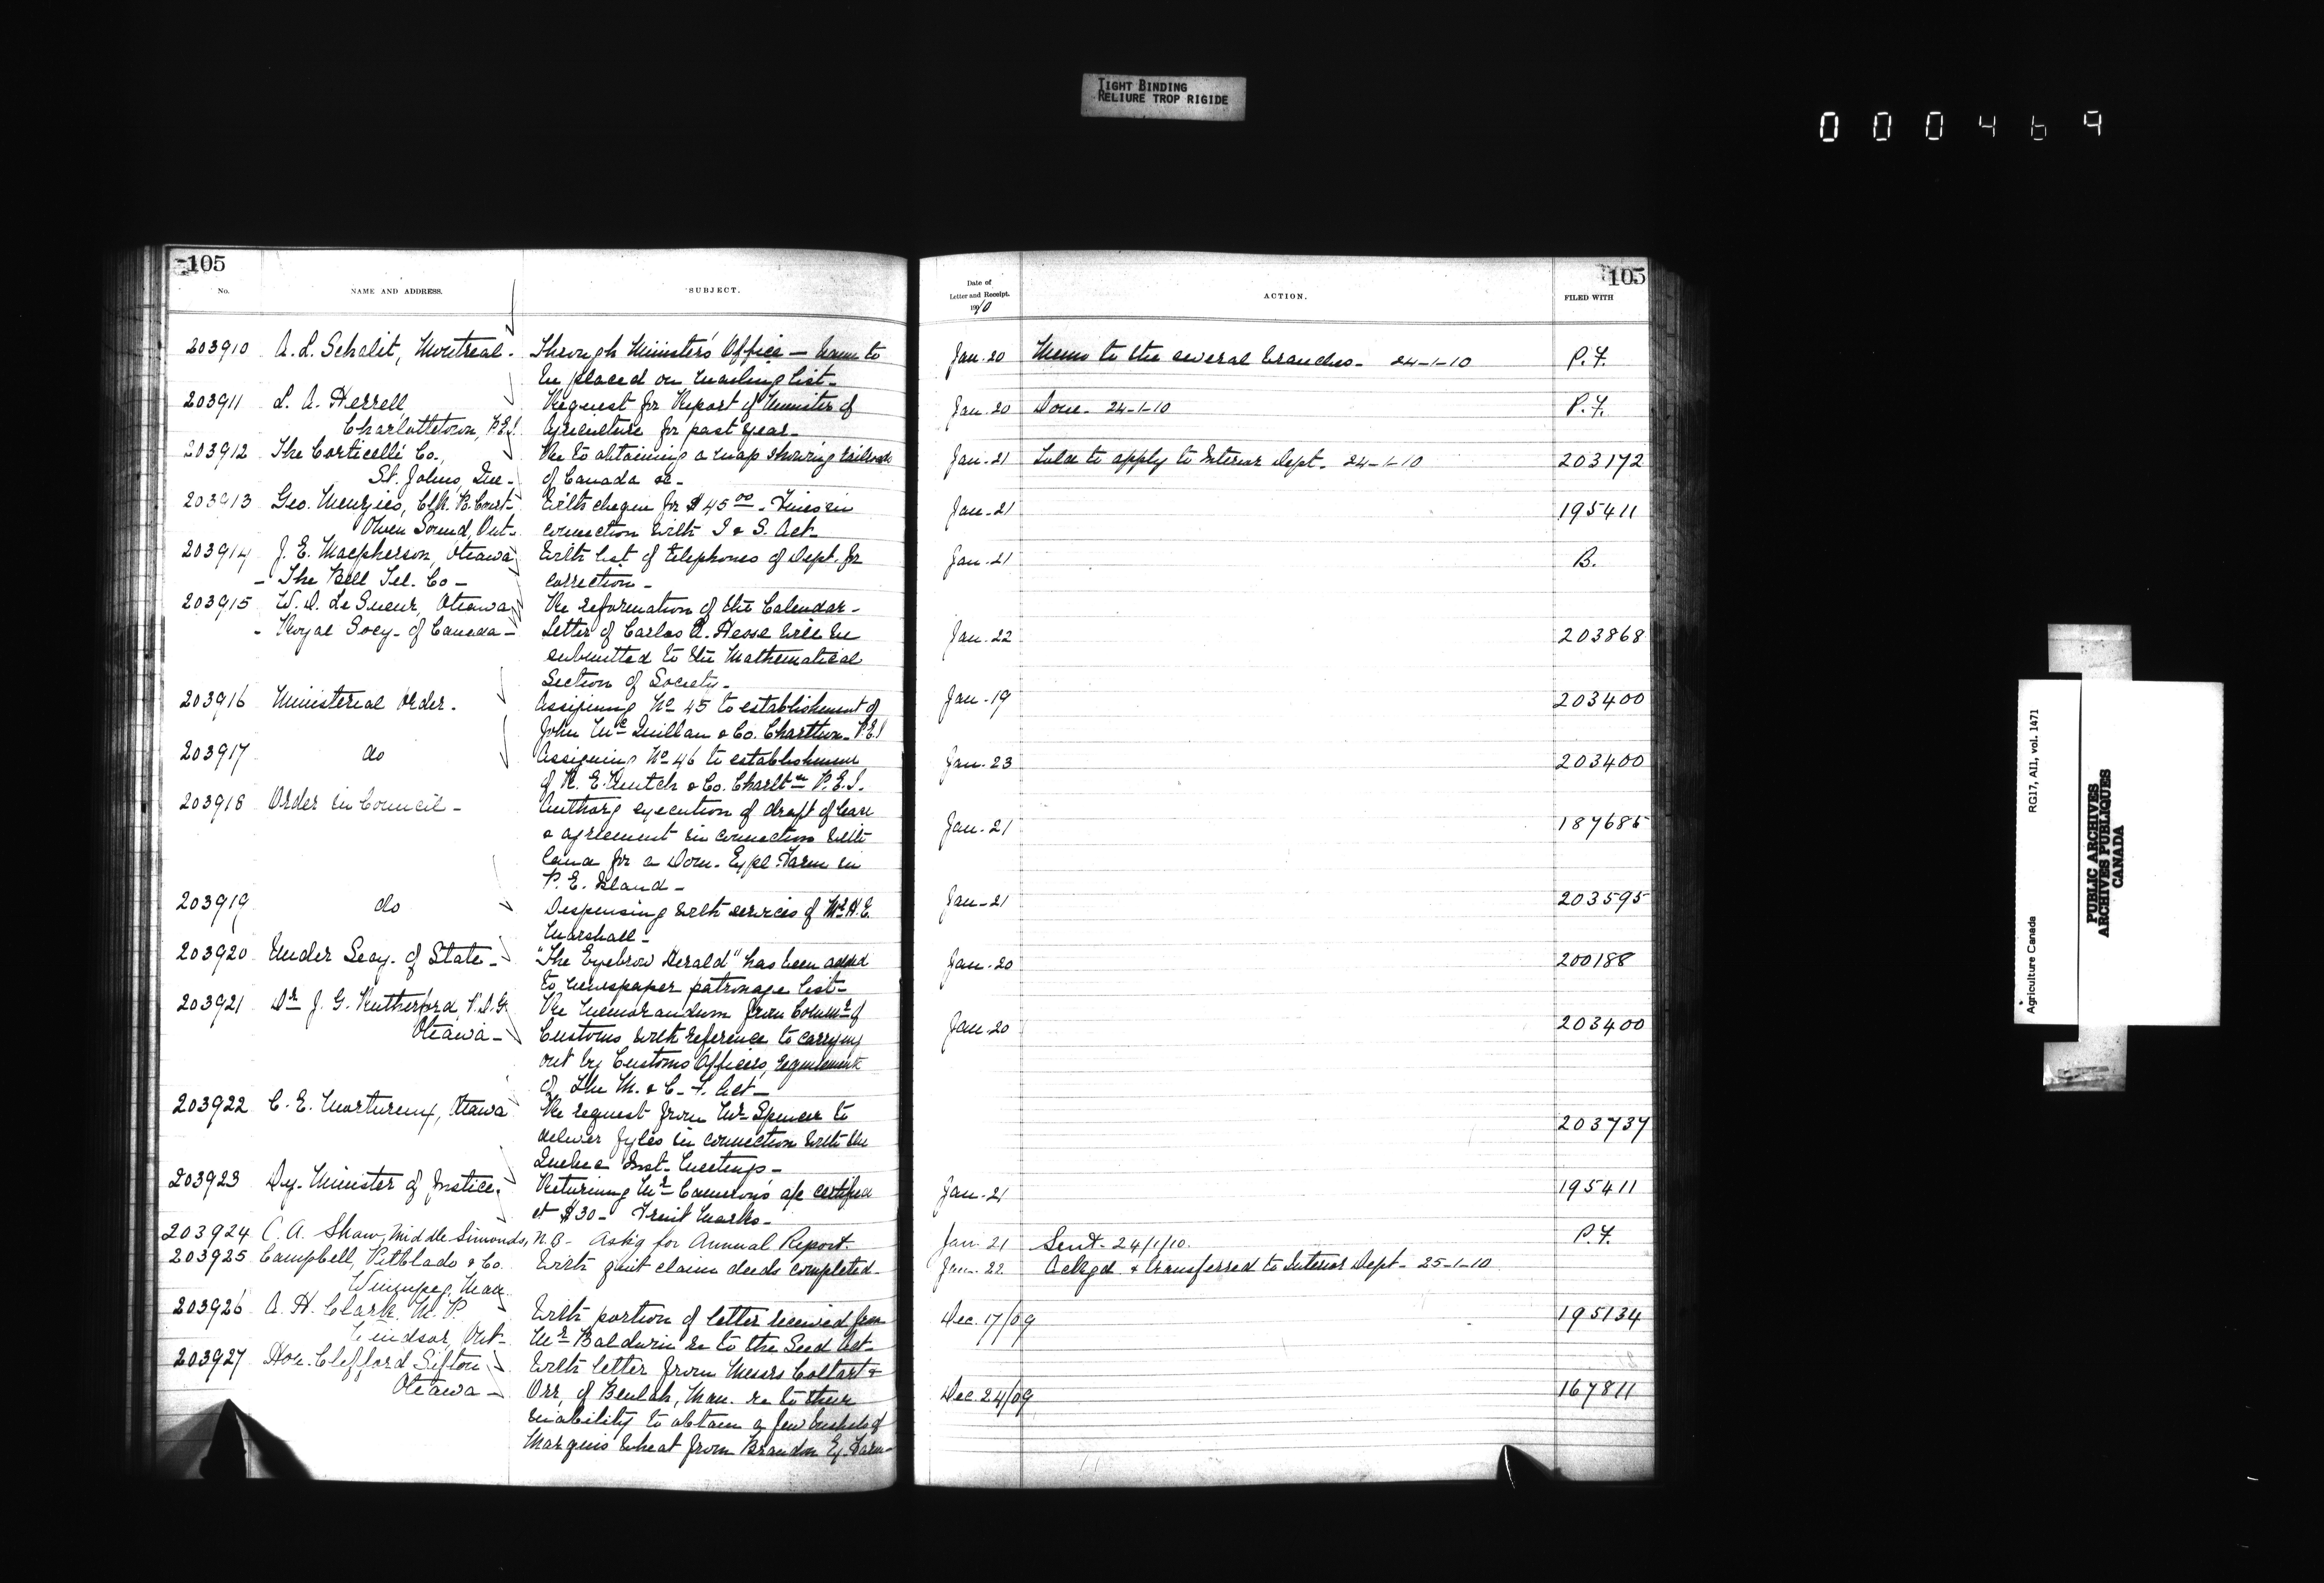 TIGHT BINDING
RELIURE TROP RIGIDE
000469
105
No.
NAME AND ADDRESS.
SUBJECT.
Date of
Letter and Receipt.
1910
ACTION.
105
FILED WITH
203910 A. L. Schalit, Montreal - Through Minister's Office — Name to Jan. 20 Memo to the several branches - 24-1-10 P.F.
be placed on mailing list -
203911 L. A. Herrell Request for Report of Minister of Jan. 20 Done - 24-1-10 P.F.
Charlottetown, P.E.I. Agriculture for past year -
203912 The Corticelli Co., Re to obtaining a map showing railroads Jan. 21 Told to apply to Interior Dept. 24-1-10 203172
St. Johns, Que - of Canada &c -
203913 Geo. Menzies, Clk. P. Court - With cheque for $45 00 - Fines in Jan. 21 195411
Owen Sound, Ont - connection with I & S. Act -
203914 J. E. Macpherson, Ottawa With list of telephones of Dept. for Jan. 21 B.
- The Bell Tel. Co - correction -
203915 W. D. Le Sueur, Ottawa Re reformation of the Calendar -
- Royal Socy - of Canada - Letter of Carlos A. Hesse will be Jan. 22 203868
submitted to the Mathematical
Section of Society -
203916 Ministerial Order - Assigning No 45 to establishment of Jan. 19 203400
John McQuillan & Co. Charttown - P.E.I
203917 do Assigning No 46 to establishment Jan. 23 203400
of R. E. Mutch & Co. Charltn P.E.I.
203918 Order in Council - Authorg execution of draft of lease
& agreement in connection with Jan. 21 187685
land for a Dom. Expl Farm in
P. E. Island -
203919 do Dispensing with services of Mr H.E. Jan - 21 203595
Marshall -
203920 Under Secy. of State - "The Eyebrow Herald" has been added Jan. 20 200188
to newspaper patronage list -
203921 Dr J. G. Rutherford, V.D.G. Re Memorandum from Commr of
Ottawa - Customs with reference to carrying Jan. 20 203400
out by Customs Officers, requirements
of the M. & C. F. Act -
203922 C. E. Mortureux, Ottawa Re request from Mr Spencer to 203737
deliver Fyles in connection with the
Quebec Inst. Meetings -
203923 Dy. Minister of Justice. Returning Mr Cameron's a/c certified Jan - 21 195411
at $30 - Fruit Marks -
203924 C. A. Shaw, Middle Simonds, N.B - Ask'g for Annual Report. Jan. 21 Sent - 24/1/10. P.F.
203925 Campbell, Pitblado & Co. With quit claim deeds completed - Jan. 22 Ackgd & transferred to Interior Dept - 25-1-10
Winnipeg, Man
203926 A. H. Clark, M. P. With portion of letter received from Dec. 17/09 195134
Windsor, Ont - Mr Baldwin re to the Seed Act -
203927 Hon. Clifford Sifton With letter from Messrs Coltart &
Ottawa - Orr, of Beulah, Man. re to their Dec. 24/09 167811
inability to obtain a few bushels of
Marquis wheat from Brandon Ex. Farm -
Agriculture Canada RG17, AII, vol. 1471
PUBLIC ARCHIVES
ARCHIVES PUBLIQUES
CANADA